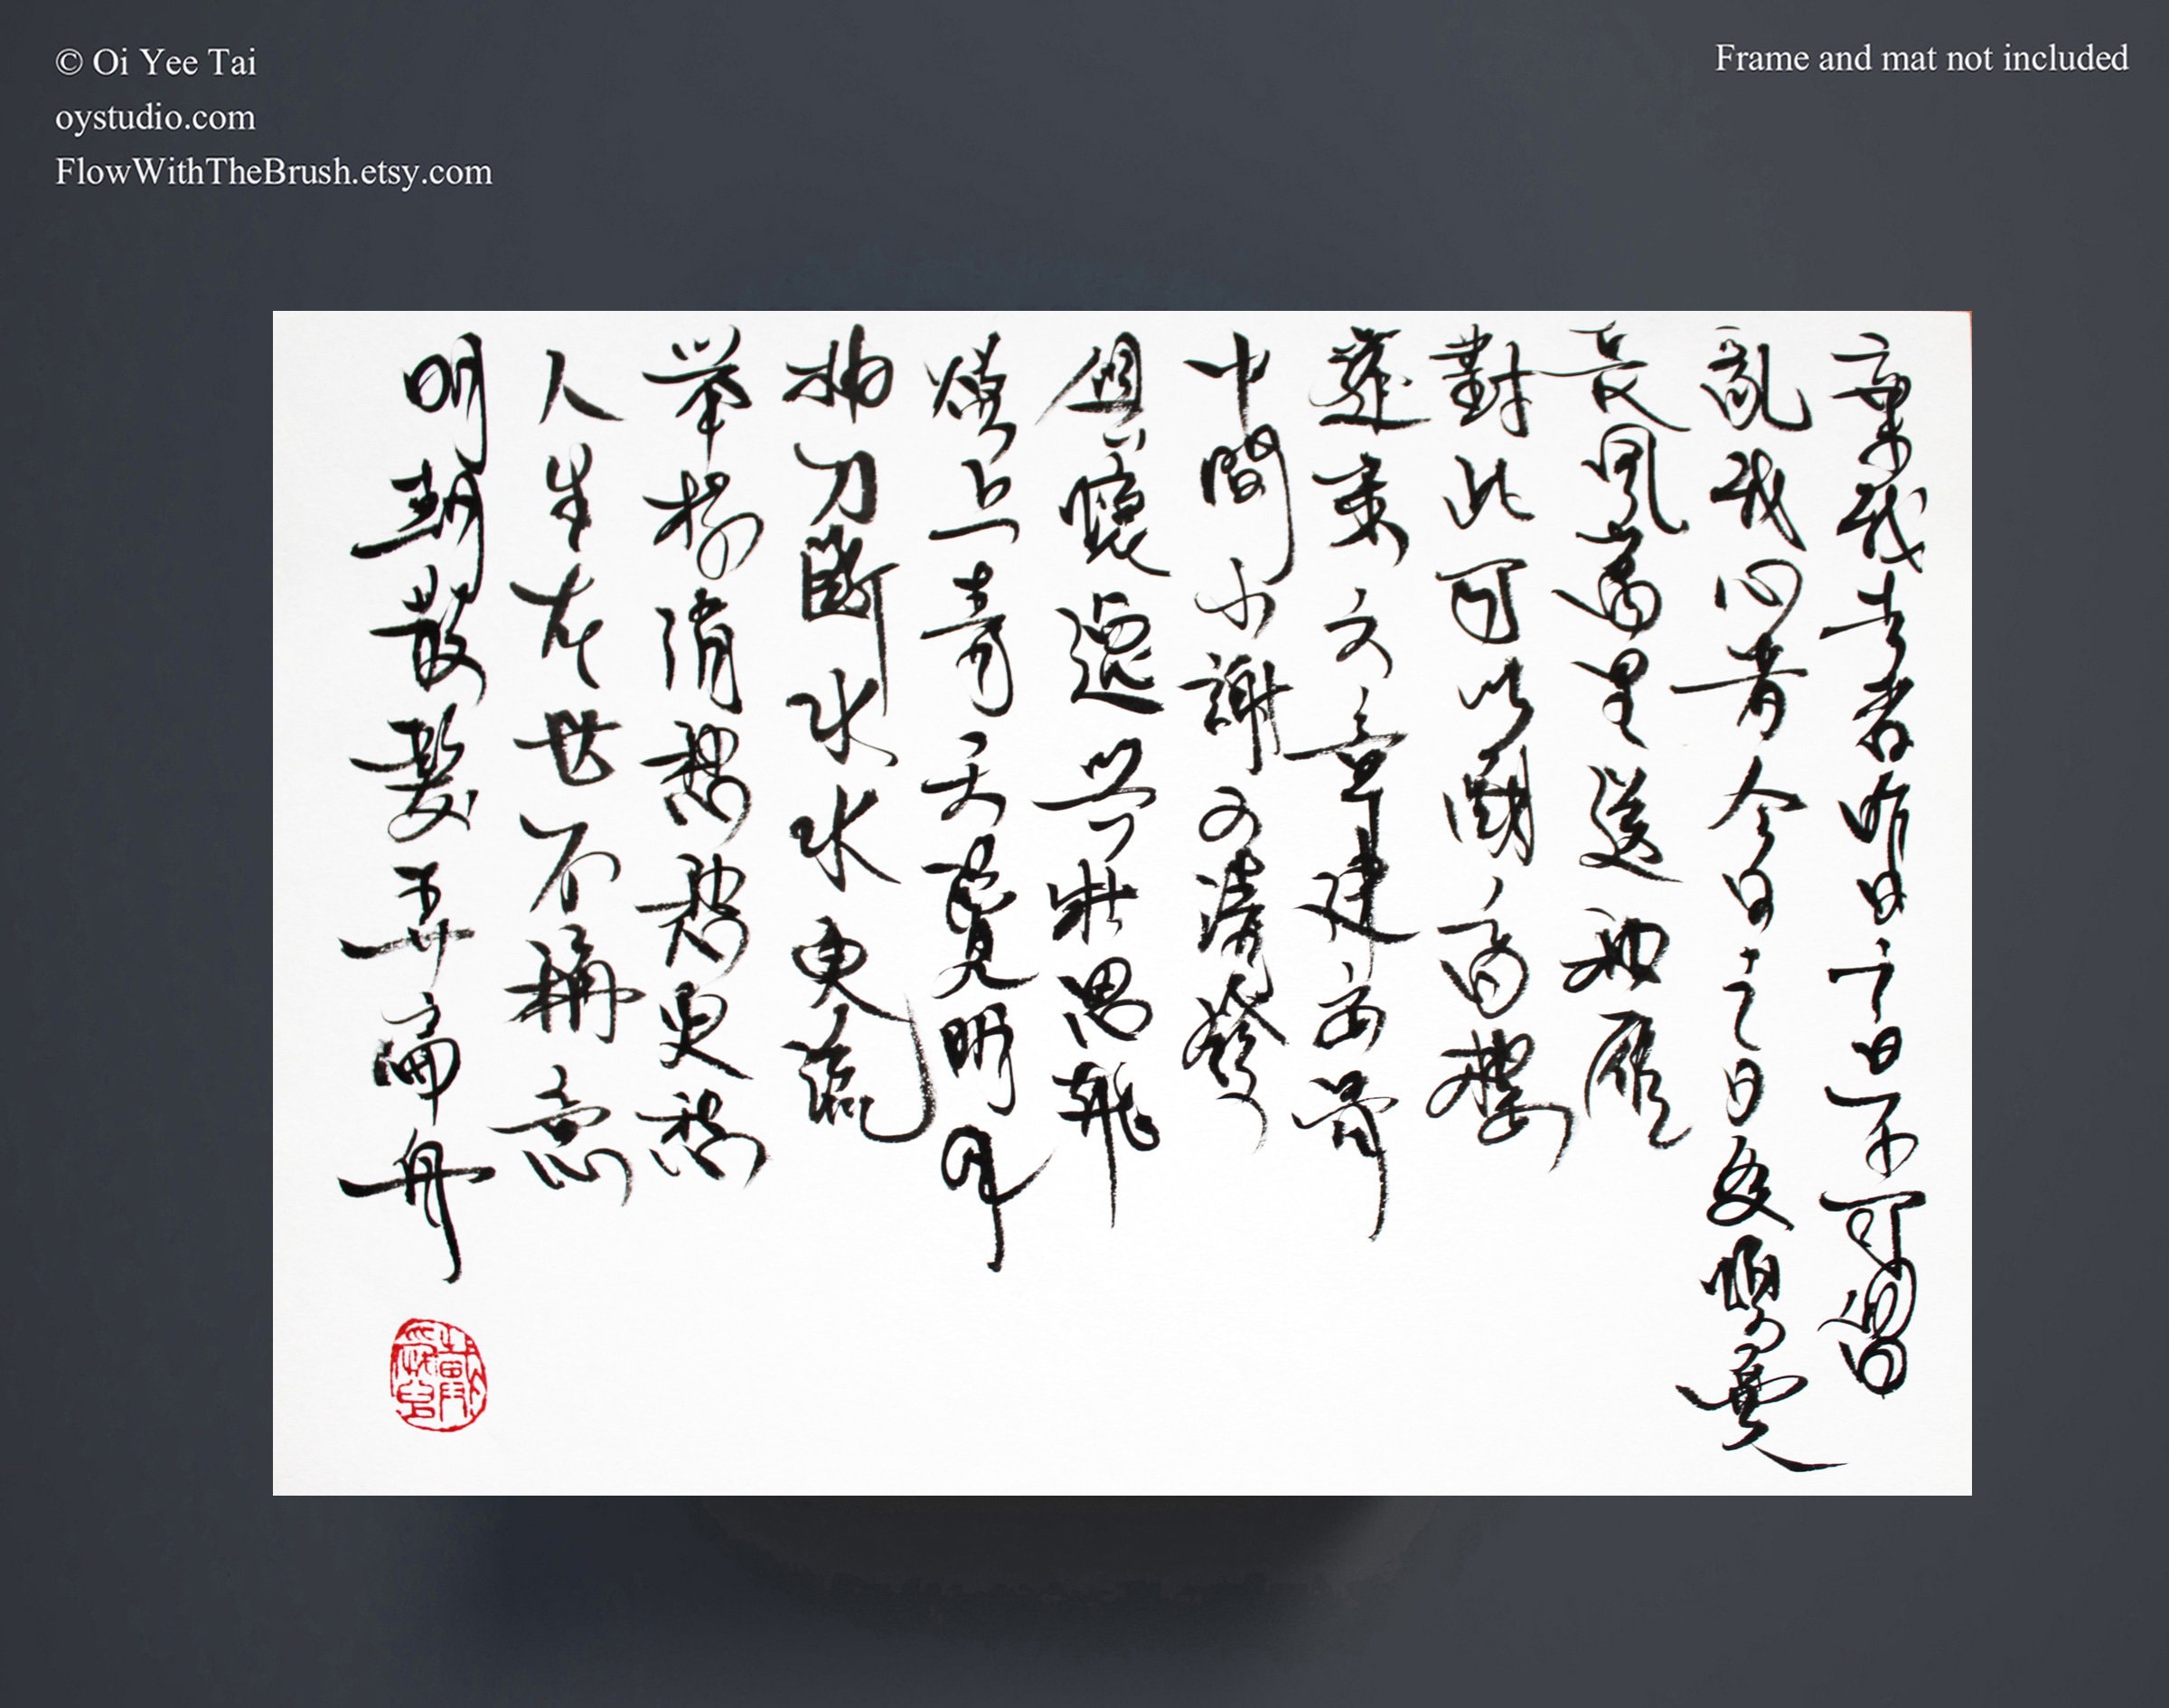 © Oi Yee Tai
oystudio.com
FlowWithTheBrush.etsy.com
Frame and mat not included
棄我去者昨日之日不可留
亂我心者今日之日多煩憂
長風萬里送秋雁
對此可以酣高樓
蓬萊文章建安骨
中間小謝又清發
俱懷逸興壯思飛
欲上青天覽明月
抽刀斷水水更流
舉杯消愁愁更愁
人生在世不稱意
明朝散髮弄扁舟